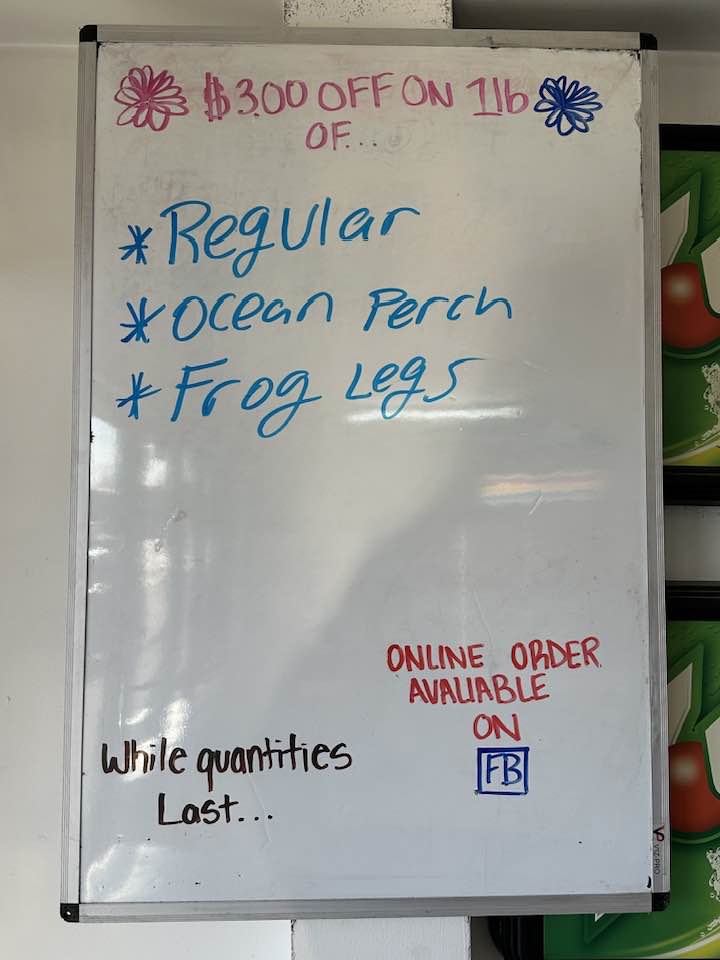 $3.00 OFF ON 1lb
OF...
* Regular
* Ocean Perch
* Frog Legs
ONLINE ORDER
AVALIABLE
ON
FB
While quantities
Last...
VIZ-PRO